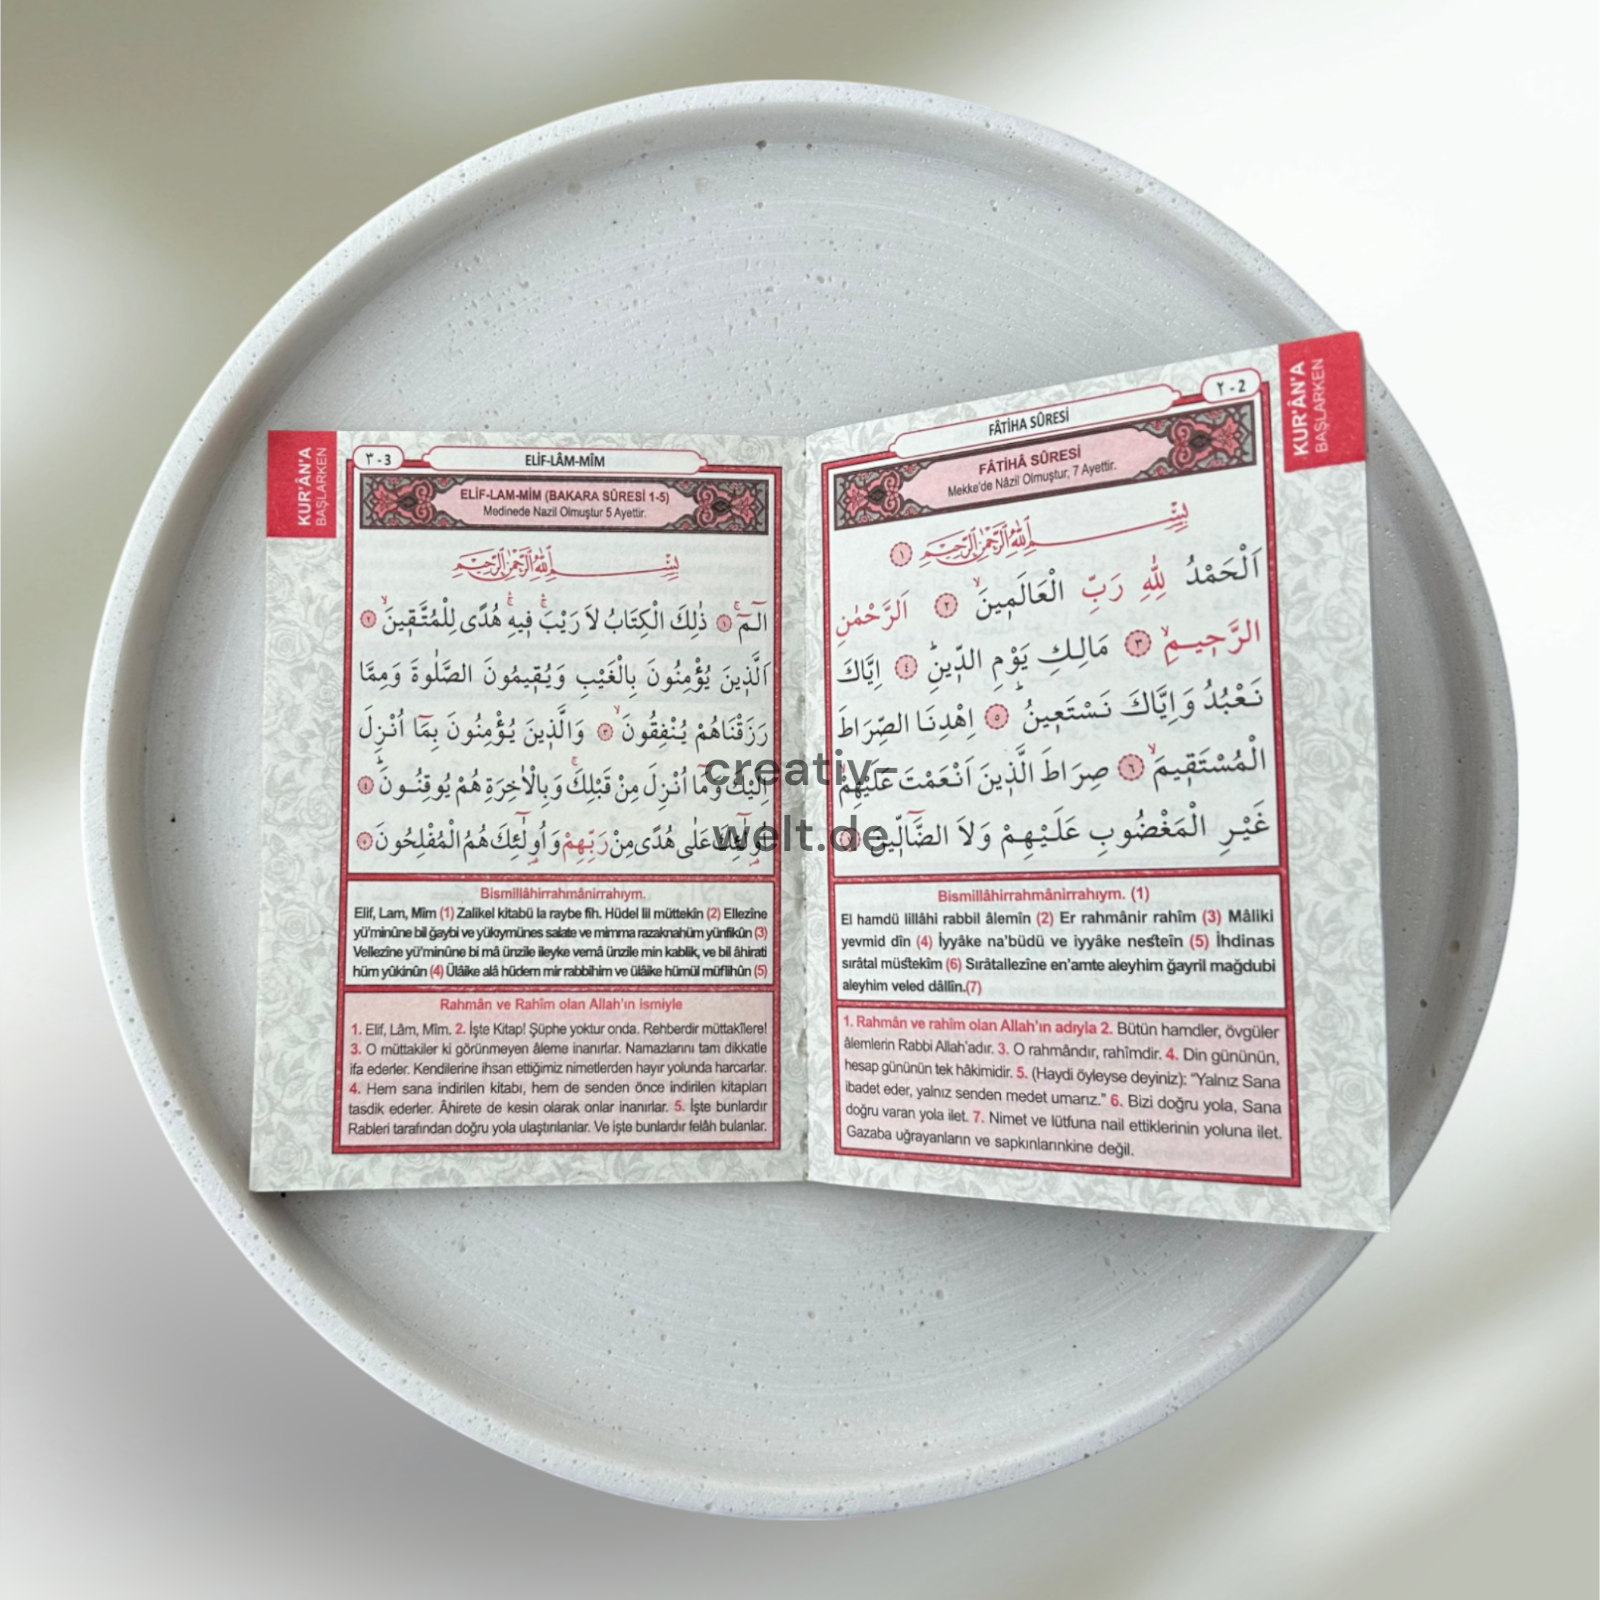 KUR'ÂN'A
BAŞLARKEN
٢ - 2
FÂTİHA SÛRESİ
FÂTİHÂ SÛRESİ
Mekke'de Nâzil Olmuştur, 7 Ayettir.
بِسْمِ اللهِ الرَّحْمٰنِ الرَّحِيمِ ١
اَلْحَمْدُ لِلّٰهِ رَبِّ الْعَالَمِينَۙ ٢ اَلرَّحْمٰنِ
الرَّحِيمِۙ ٣ مَالِكِ يَوْمِ الدِّينِۜ ٤ اِيَّاكَ
نَعْبُدُ وَاِيَّاكَ نَسْتَعِينُۜ ٥ اِهْدِنَا الصِّرَاطَ
الْمُسْتَقِيمَۙ ٦ صِرَاطَ الَّذِينَ اَنْعَمْتَ عَلَيْهِمْۙ
غَيْرِ الْمَغْضُوبِ عَلَيْهِمْ وَلاَ الضَّالِّينَ ٧
Bismillâhirrahmânirrahıym. (1)
El hamdü lillâhi rabbil âlemîn (2) Er rahmânir rahîm (3) Mâliki
yevmid dîn (4) İyyâke na'büdü ve iyyâke nesteîn (5) İhdinas
sırâtal müstekîm (6) Sırâtallezîne en'amte aleyhim ğayril mağdubi
aleyhim veled dâllîn.(7)
1. Rahmân ve rahîm olan Allah'ın adıyla 2. Bütün hamdler, övgüler
âlemlerin Rabbi Allah'adır. 3. O rahmândır, rahîmdir. 4. Din gününün,
hesap gününün tek hâkimidir. 5. (Haydi öyleyse deyiniz): "Yalnız Sana
ibadet eder, yalnız senden medet umarız." 6. Bizi doğru yola, Sana
doğru varan yola ilet. 7. Nimet ve lütfuna nail ettiklerinin yoluna ilet.
Gazaba uğrayanların ve sapkınlarınkine değil.
KUR'ÂN'A
BAŞLARKEN
٣ - 3
ELİF-LÂM-MÎM
ELİF-LAM-MİM (BAKARA SÛRESİ 1-5)
Medinede Nazil Olmuştur 5 Ayettir.
بِسْمِ اللهِ الرَّحْمٰنِ الرَّحِيمِ
الٓمٓۚ ١ ذٰلِكَ الْكِتَابُ لاَ رَيْبَۚ فِيهِۚ هُدًى لِلْمُتَّقِينَۙ ٢
اَلَّذِينَ يُؤْمِنُونَ بِالْغَيْبِ وَيُقِيمُونَ الصَّلٰوةَ وَمِمَّا
رَزَقْنَاهُمْ يُنْفِقُونَۙ ٣ وَالَّذِينَ يُؤْمِنُونَ بِمَٓا اُنْزِلَ
اِلَيْكَ وَمَٓا اُنْزِلَ مِنْ قَبْلِكَۚ وَبِالْاٰخِرَةِ هُمْ يُوقِنُونَۜ ٤
اُو۬لٰٓئِكَ عَلٰى هُدًى مِنْ رَبِّهِمْ وَاُو۬لٰٓئِكَ هُمُ الْمُفْلِحُونَ ٥
Bismillâhirrahmânirrahıym.
Elif, Lam, Mîm (1) Zalikel kitabü la raybe fih. Hüdel lil müttekîn (2) Ellezîne
yü'minûne bil ğaybi ve yükıymünes salate ve mimma razaknahüm yünfikûn (3)
Vellezîne yü'minûne bi mâ ünzile ileyke vemâ ünzile min kablik, ve bil âhirati
hüm yûkinûn (4) Ülâike alâ hüdem mir rabbihim ve ülâike hümül müflihûn (5)
Rahmân ve Rahîm olan Allah'ın ismiyle
1. Elif, Lâm, Mîm. 2. İşte Kitap! Şüphe yoktur onda. Rehberdir müttakîlere!
3. O müttakiler ki görünmeyen âleme inanırlar. Namazlarını tam dikkatle
ifa ederler. Kendilerine ihsan ettiğimiz nimetlerden hayır yolunda harcarlar.
4. Hem sana indirilen kitabı, hem de senden önce indirilen kitapları
tasdik ederler. Âhirete de kesin olarak onlar inanırlar. 5. İşte bunlardır
Rableri tarafından doğru yola ulaştırılanlar. Ve işte bunlardır felâh bulanlar.
creativ-
welt.de